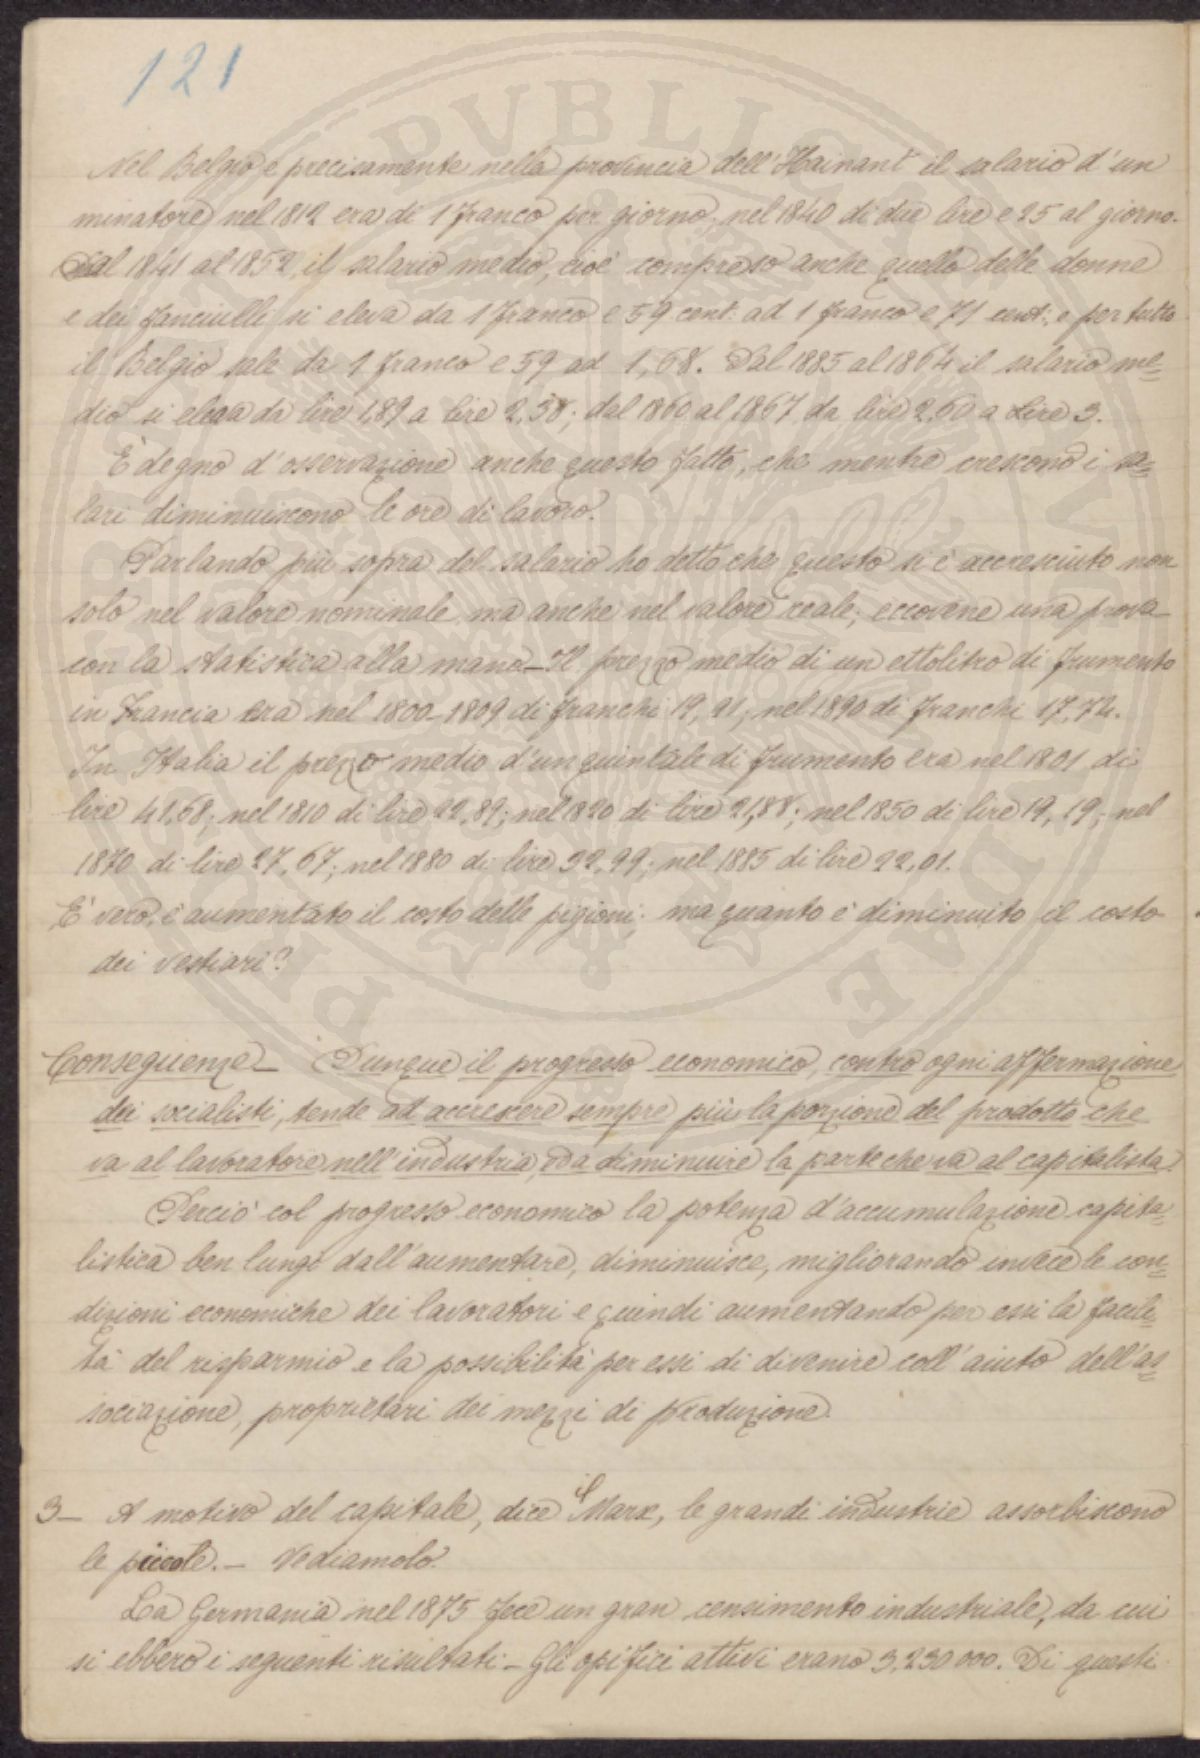 121
Nel Belgio e precisamente nella provincia dell'Hainant il salario d'un
minatore nel 1812 era di 1 franco per giorno, nel 1840 di due lire e 25 al giorno.
Dal 1841 al 1852 il salario medio, cioè compreso anche quello delle donne
e dei fanciulli si eleva da 1 franco e 59 cent. ad 1 franco e 71 cent.; e per tutto
il Belgio sale da 1 franco e 59 ad 1,68. Dal 1885 al 1864 il salario me=
dio si eleva da lire 1,89 a lire 2,58; dal 1860 al 1867 da lire 2,60 a Lire 3.
È degno d'osservazione anche questo fatto, che mentre crescono i sa=
lari diminuiscono le ore di lavoro.
Parlando più sopra del salario ho detto che questo si è accresciuto non
solo nel valore nominale ma anche nel valore reale; eccovene una prova
con la statistica alla mano_ Il prezzo medio di un ettolitro di frumento
in Francia era nel 1800_1809 di franchi 19,91, nel 1890 di franchi 17,74.
In Italia il prezzo medio d'un quintale di frumento era nel 1801 di
lire 41,68; nel 1810 di lire 22,89; nel 1820 di lire 21,88; nel 1850 di lire 19,19; nel
1870 di lire 27,67; nel 1880 di lire 32,99; nel 1885 di lire 22,01.
E' vero, è aumentato il costo delle pigioni; ma quanto è diminuito il costo
dei vestiari?
Conseguenze_ Dunque il progresso economico, contro ogni affermazione
dei socialisti, tende ad accrescere sempre più la porzione del prodotto che
va al lavoratore nell'industria, e a diminuire la parte che va al capitalista.
Perciò col progresso economico la potenza d'accumulazione capita=
listica ben lungi dall'aumentare, diminuisce, migliorando invece le con=
dizioni economiche dei lavoratori e quindi aumentando per essi la facili=
tà del risparmio e la possibilità per essi di divenire coll'aiuto dell'as=
sociazione, proprietari dei mezzi di produzione.
3_ A motivo del capitale, dice il Marx, le grandi industrie assorbiscono
le piccole._ Vediamolo.
La Germania nel 1875 fece un gran censimento industriale, da cui
si ebbero i seguenti risultati_ Gli opifici attivi erano 3,230 000. Di questi